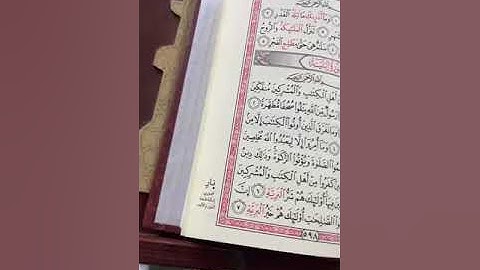 وَمَآ أَدْرَىٰكَ مَا لَيْلَةُ ٱلْقَدْرِ ٢
تَنَزَّلُ ٱلْمَلَٰٓئِكَةُ وَٱلرُّوحُ
سَلَٰمٌ هِىَ حَتَّىٰ مَطْلَعِ ٱلْفَجْرِ ٥
مِنْ أَهْلِ ٱلْكِتَٰبِ وَٱلْمُشْرِكِينَ مُنفَكِّينَ
رَسُولٌ مِّنَ ٱللَّهِ يَتْلُوا۟ صُحُفًا مُّطَهَّرَةً ٢
وَمَا تَفَرَّقَ ٱلَّذِينَ أُوتُوا۟ ٱلْكِتَٰبَ إِلَّا مِنۢ
وَمَآ أُمِرُوٓا۟ إِلَّا لِيَعْبُدُوا۟ ٱللَّهَ مُخْلِصِينَ
ٱلصَّلَوٰةَ وَيُؤْتُوا۟ ٱلزَّكَوٰةَ وَذَٰلِكَ دِينُ
كَفَرُوا۟ مِنْ أَهْلِ ٱلْكِتَٰبِ وَٱلْمُشْرِكِينَ
فِيهَآ أُو۟لَٰٓئِكَ هُمْ شَرُّ ٱلْبَرِيَّةِ ٦ إِنَّ
ٱلصَّٰلِحَٰتِ أُو۟لَٰٓئِكَ هُمْ خَيْرُ ٱلْبَرِيَّةِ ٧
٥٩٨